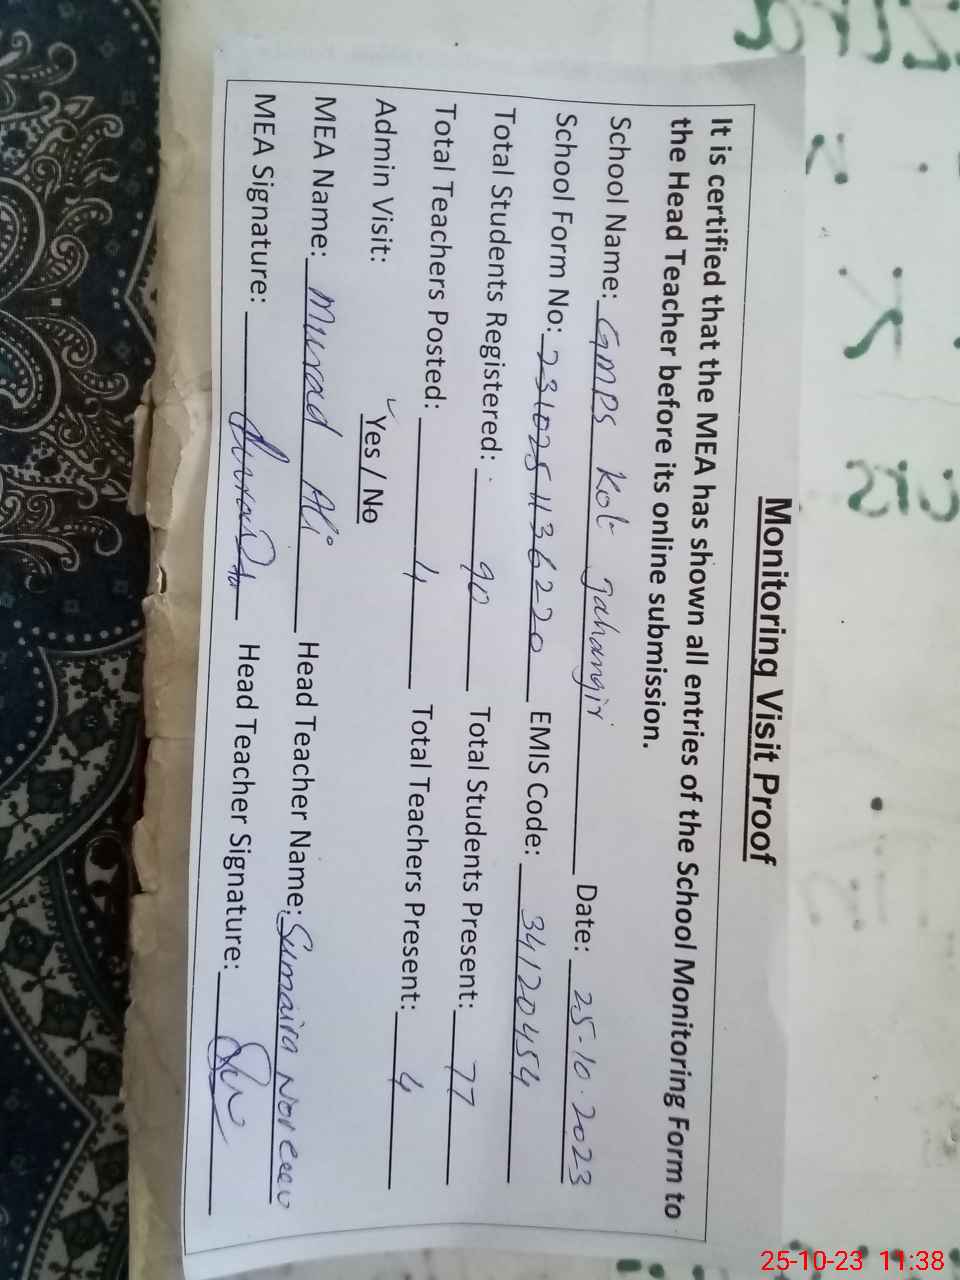 Monitoring Visit Proof
It is certified that the MEA has shown all entries of the School Monitoring Form to
the Head Teacher before its online submission.
School Name: GMPS Kot Jahangir Date: 25-10-2023
School Form No: 2310251136220 EMIS Code: 34120454
Total Students Registered: 90 Total Students Present: 77
Total Teachers Posted: 4 Total Teachers Present: 4
Admin Visit: Yes / No
MEA Name: Murad Ali Head Teacher Name: Sumaira Noreen
MEA Signature: Head Teacher Signature:
25-10-23 11:38